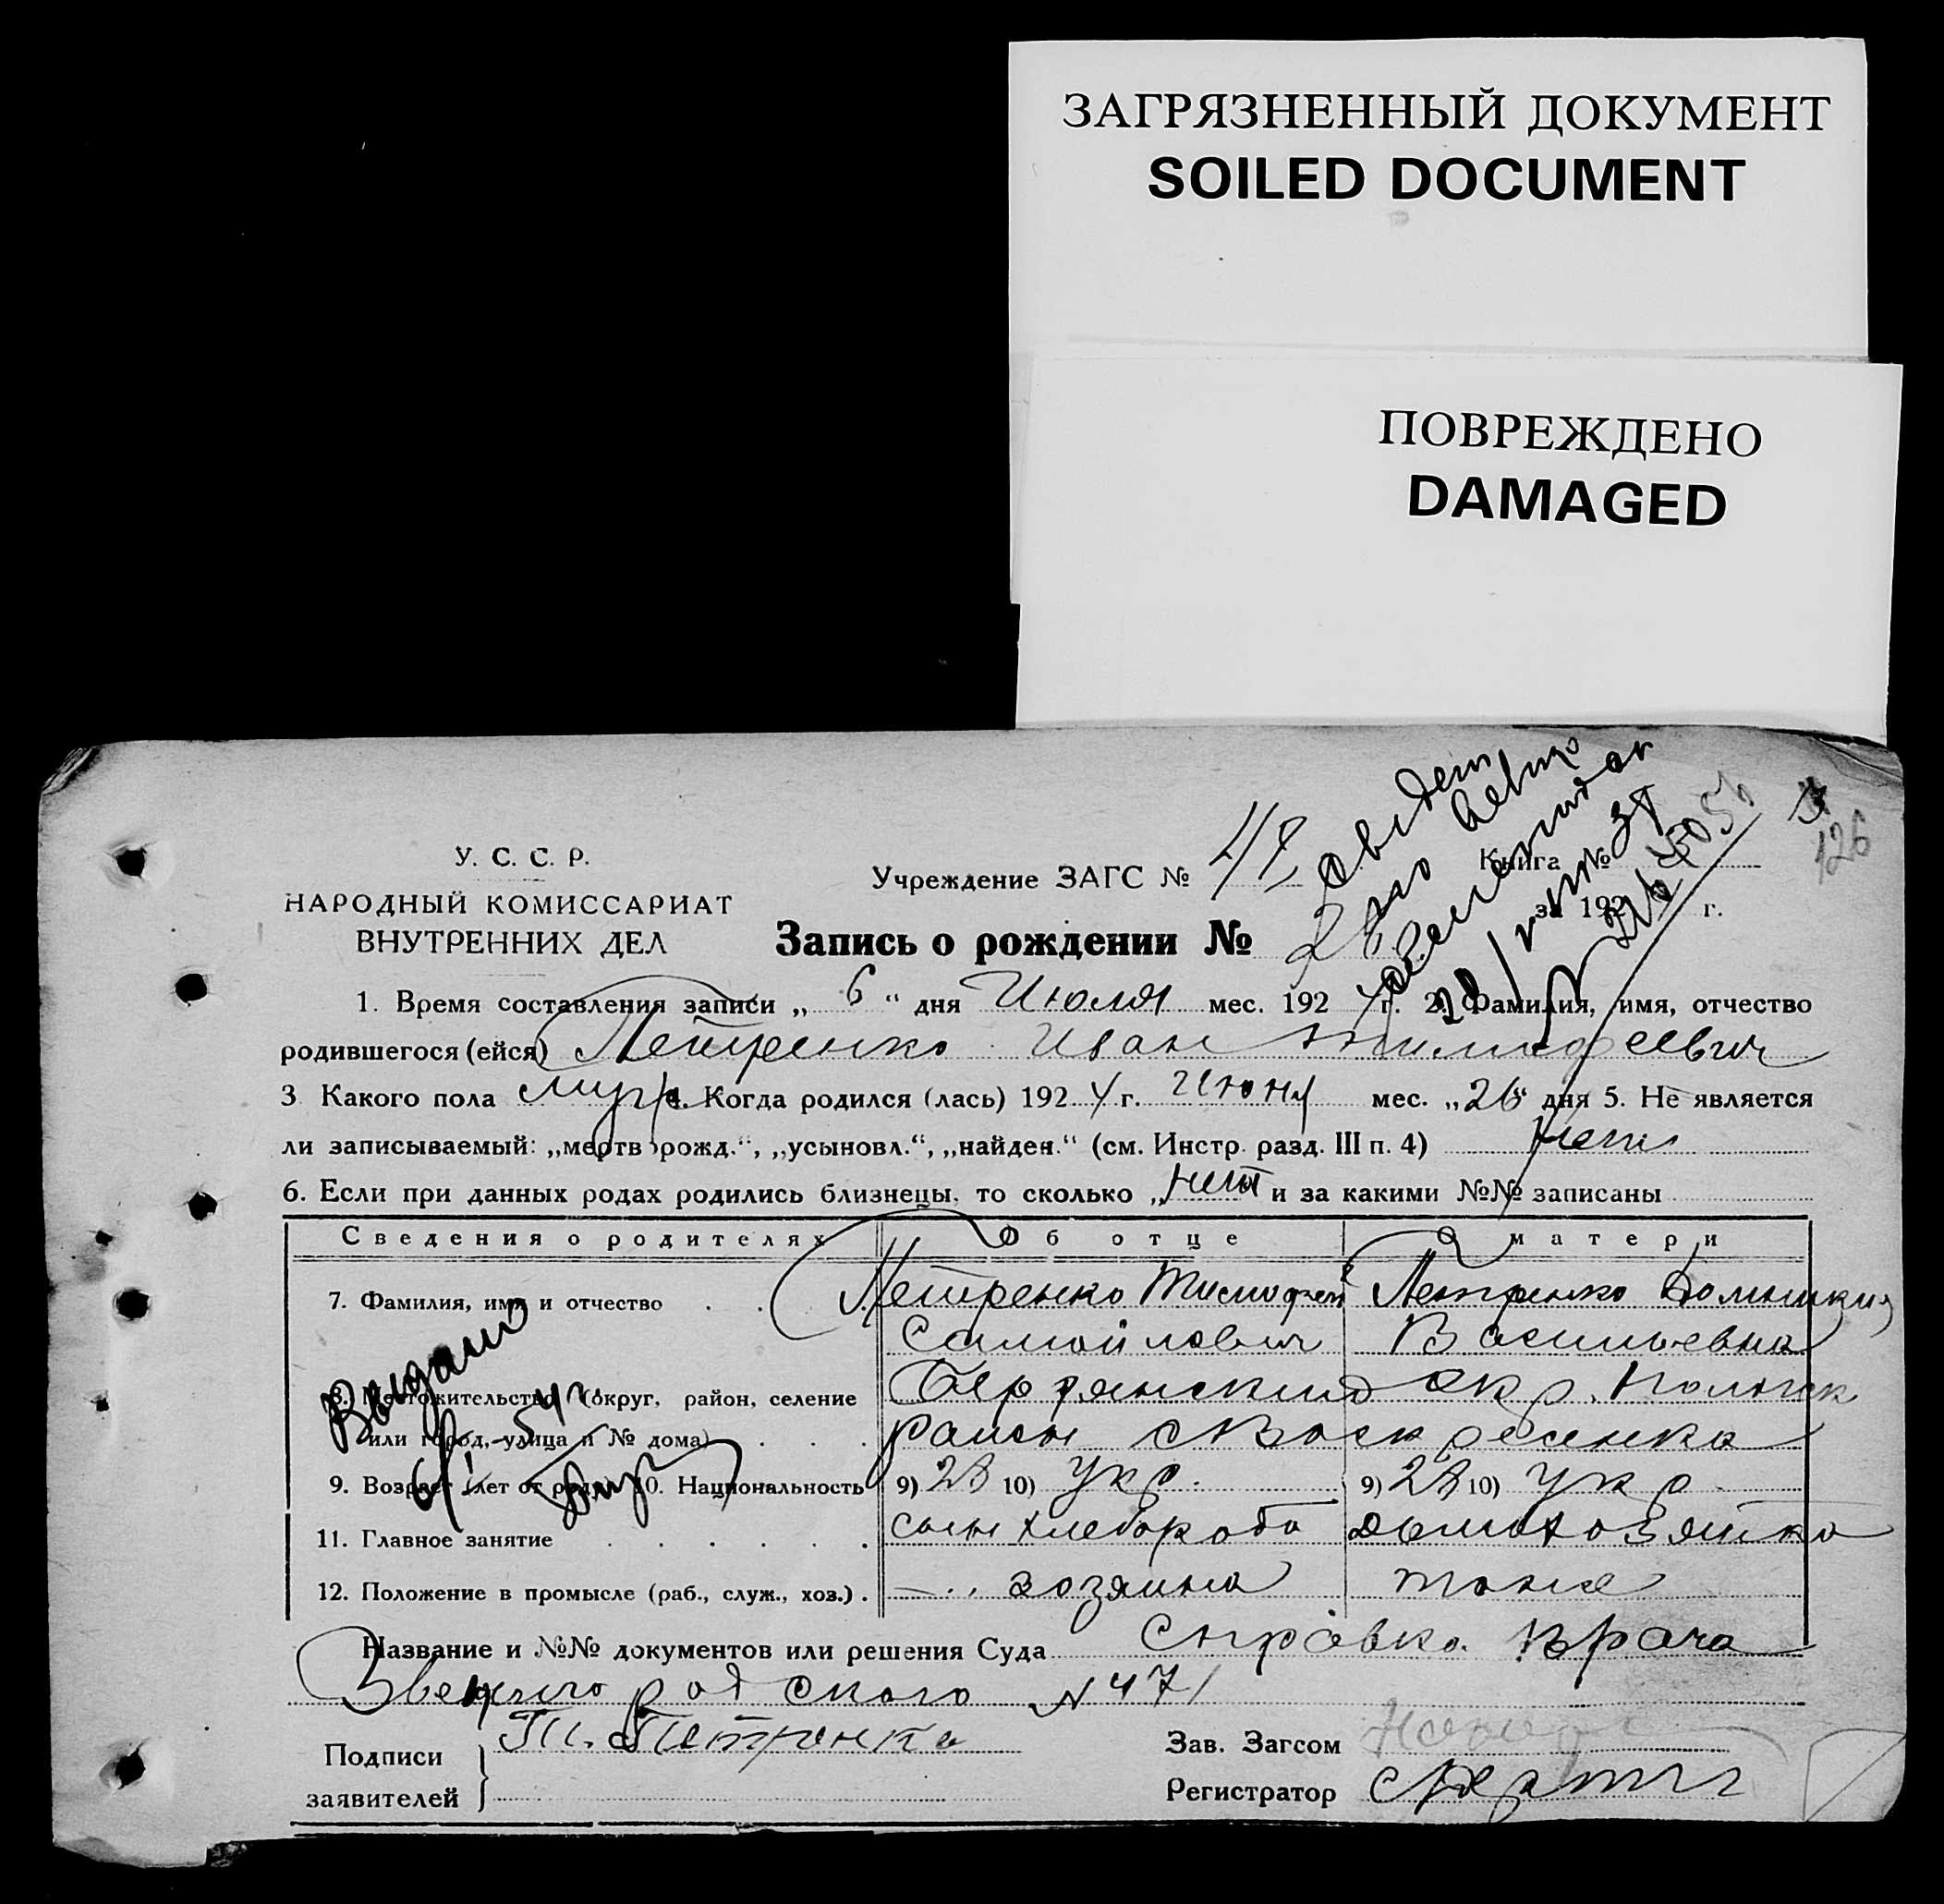 ЗАГРЯЗНЕННЫЙ ДОКУМЕНТ
SOILED DOCUMENT
ПОВРЕЖДЕНО
DAMAGED
126
У. С. С. Р.
НАРОДНЫЙ КОМИССАРИАТ
ВНУТРЕННИХ ДЕЛ
Учреждение ЗАГС №
Книга №
за 192 г.
Запись о рождении №
1. Время составления записи „ 6 “ дня Июля мес. 192 4 г. 2. Фамилия, имя, отчество
родившегося (ейся) Петренко Иван Тимофеевич
3 Какого пола муж 4. Когда родился (лась) 192 4 г. Июня мес. „26“ дня 5. Не является
ли записываемый: „мертворожд.“, „усыновл.“, „найден.“ (см. Инстр. разд. III п. 4) Нет
6. Если при данных родах родились близнецы, то сколько „ нет и за какими №№ записаны
Сведения о родителях Об отце О матери
7. Фамилия, имя и отчество Петренко Тимофей Петренко
Самойлович Васильевна
8. Местожительство (округ, район, селение Бердянский окр.
или город, улица и № дома) район с Воскресенка
9. Возраст (лет от роду) 10. Национальность 9) 28 10) Укр. 9) 28 10) Укр
11. Главное занятие сын хлебороба домохозяйка
12. Положение в промысле (раб., служ., хоз.) хозяина тоже
Название и №№ документов или решения Суда Справка врача
N 471
Подписи
заявителей
Т. Петренко
Зав. Загсом
Регистратор
Выдано